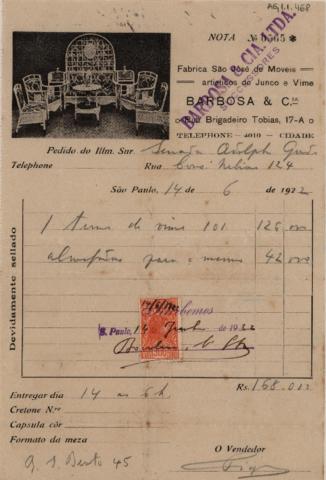 A61.1.468
NOTA № 0565 *
BARBOSA & CIA. LTDA.
SUCCESSORES
Fabrica São José de Moveis
artisticos de Junco e Vime
BARBOSA & C.ia
Rua Brigadeiro Tobias, 17-A
TELEPHONE - 4010 - CIDADE
Pedido do Illm. Snr.
Telephone Rua Cons. Nebias 124
São Paulo, 14 de 6 de 1922
1 terno de vime 101 125
almofadas para o mesmo 42
Devidamente sellado
Recebemos
S. Paulo, 14 de 1922
Rs. 168.000
Entregar dia 14 as 6 h
Cretone N.ro
Capsula côr
Formato da meza
O Vendedor
S. Bento 45